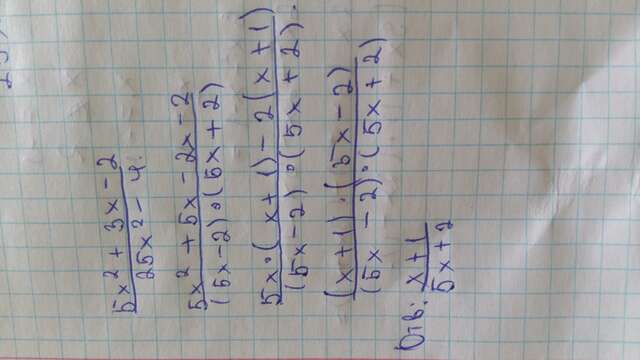 5x² + 3x - 2
25x² - 4
5x² + 5x - 2x - 2
(5x-2)•(5x+2)
5x•(x+1) - 2(x+1)
(5x-2)•(5x+2).
(x+1)•(5x-2)
(5x-2)•(5x+2)
Отв: x+1
5x+2